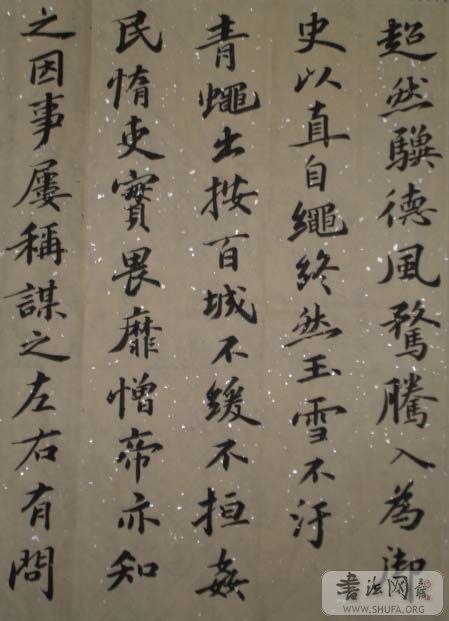 超然驥德風騖騰入為御
史以直自繩終然玉雪不汙
青蠅出按百城不緩不搄姦
民惰吏實畏靡憎帝亦知
之因事屢稱謀之左右有問
書法网
WWW.SHUFA.ORG